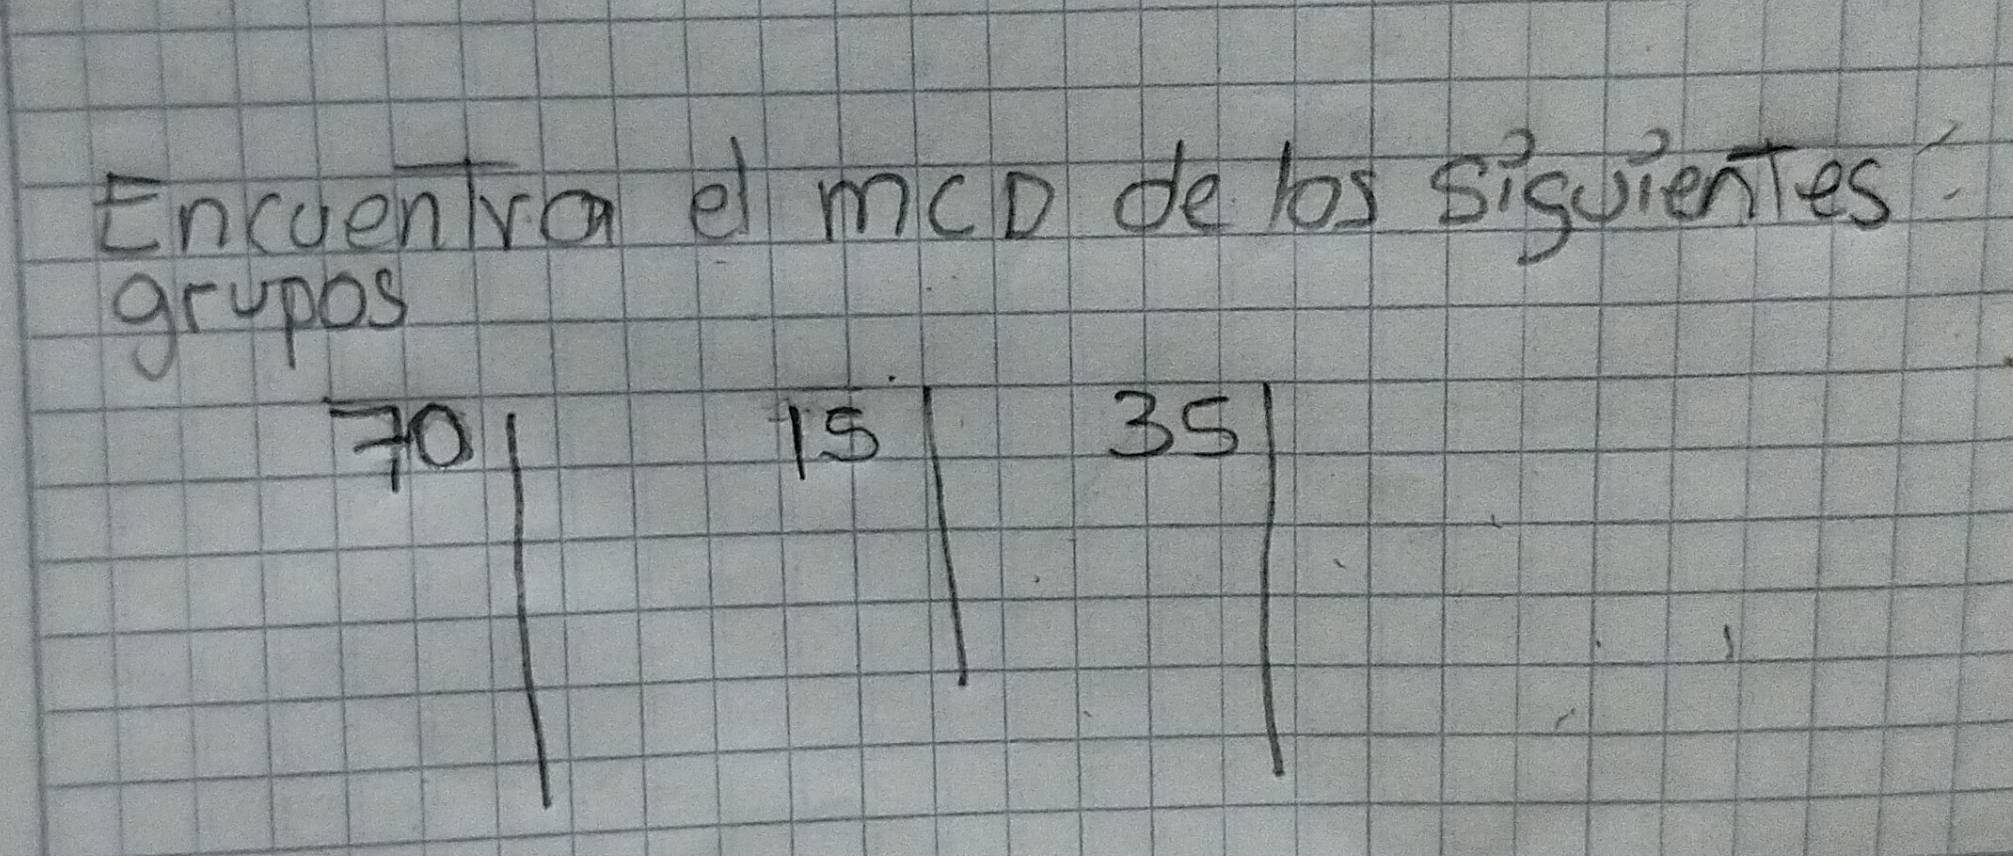 Encuentra el mCD de los siguientes
grupos
70 15 35